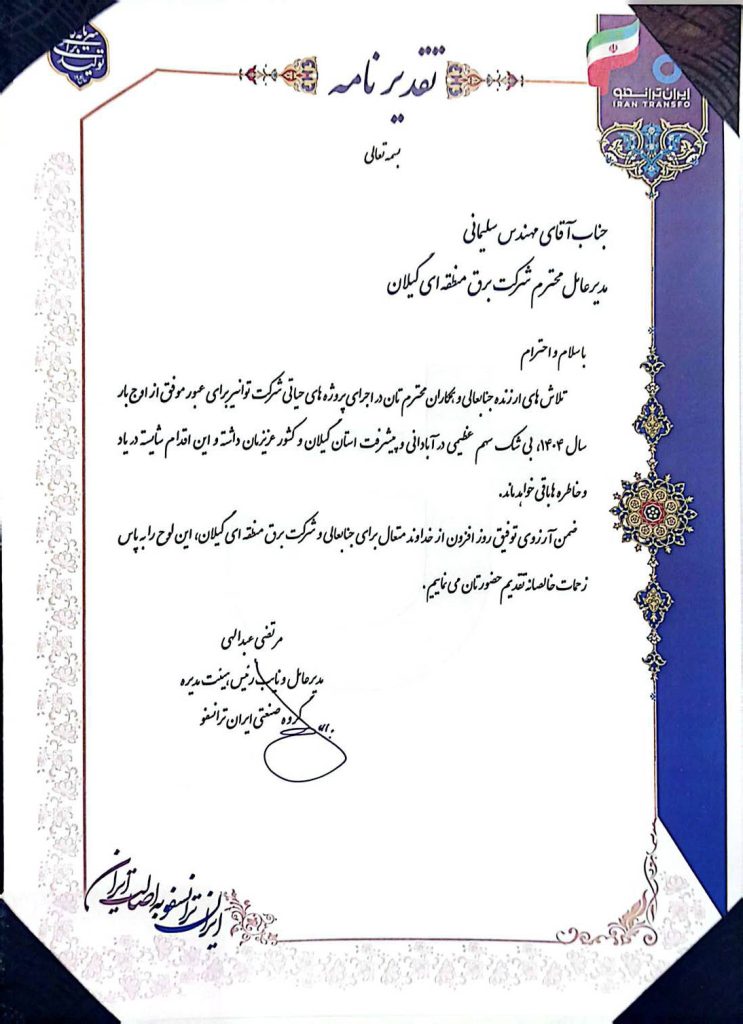 تقدیر نامه
ایران ترانسفو
IRAN TRANSFO
بسمه تعالی
جناب آقای مهندس سلیمانی
مدیرعامل محترم شرکت برق منطقه ای گیلان
باسلام و احترام
تلاش های ارزنده جنابعالی و همکاران محترم تان در اجرای پروژه های حیاتی شرکت توانیر برای عبور موفق از اوج بار
سال ۱۴۰۴، بی شک سهم عظیمی در آبادانی و پیشرفت استان گیلان و کشور عزیزمان داشته و این اقدام شایسته در یاد
و خاطره ها باقی خواهد ماند.
ضمن آرزوی توفیق روز افزون از خداوند متعال برای جنابعالی و شرکت برق منطقه ای گیلان، این لوح را به پاس
زحمات خالصانه تقدیم حضورتان می نماییم.
مرتضی عبدالهی
مدیرعامل و نایب رئیس هیئت مدیره
گروه صنعتی ایران ترانسفو
ایران ترانسفو به اصالت ایران